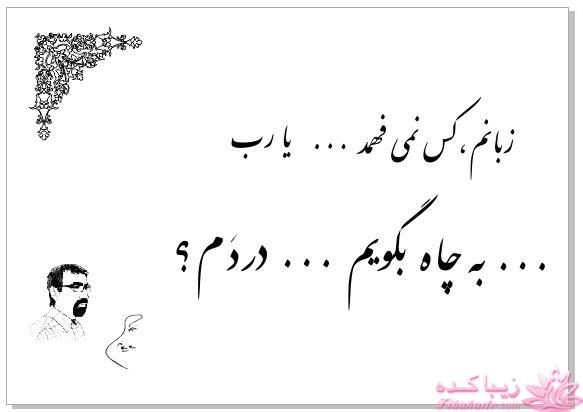 زبانم ، کس نمی فهمد ... یا رب
... به چاه بگویم ... دردَم ؟
زیباکده